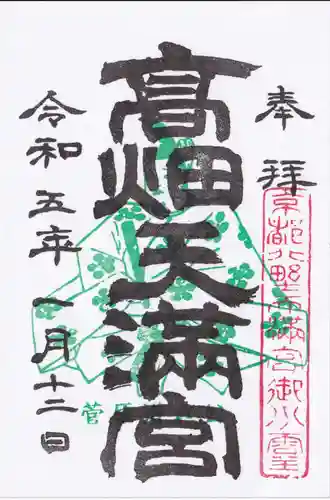 奉拝
京都北野天満宮御分霊
高畑天満宮
菅
令和五年一月十二日